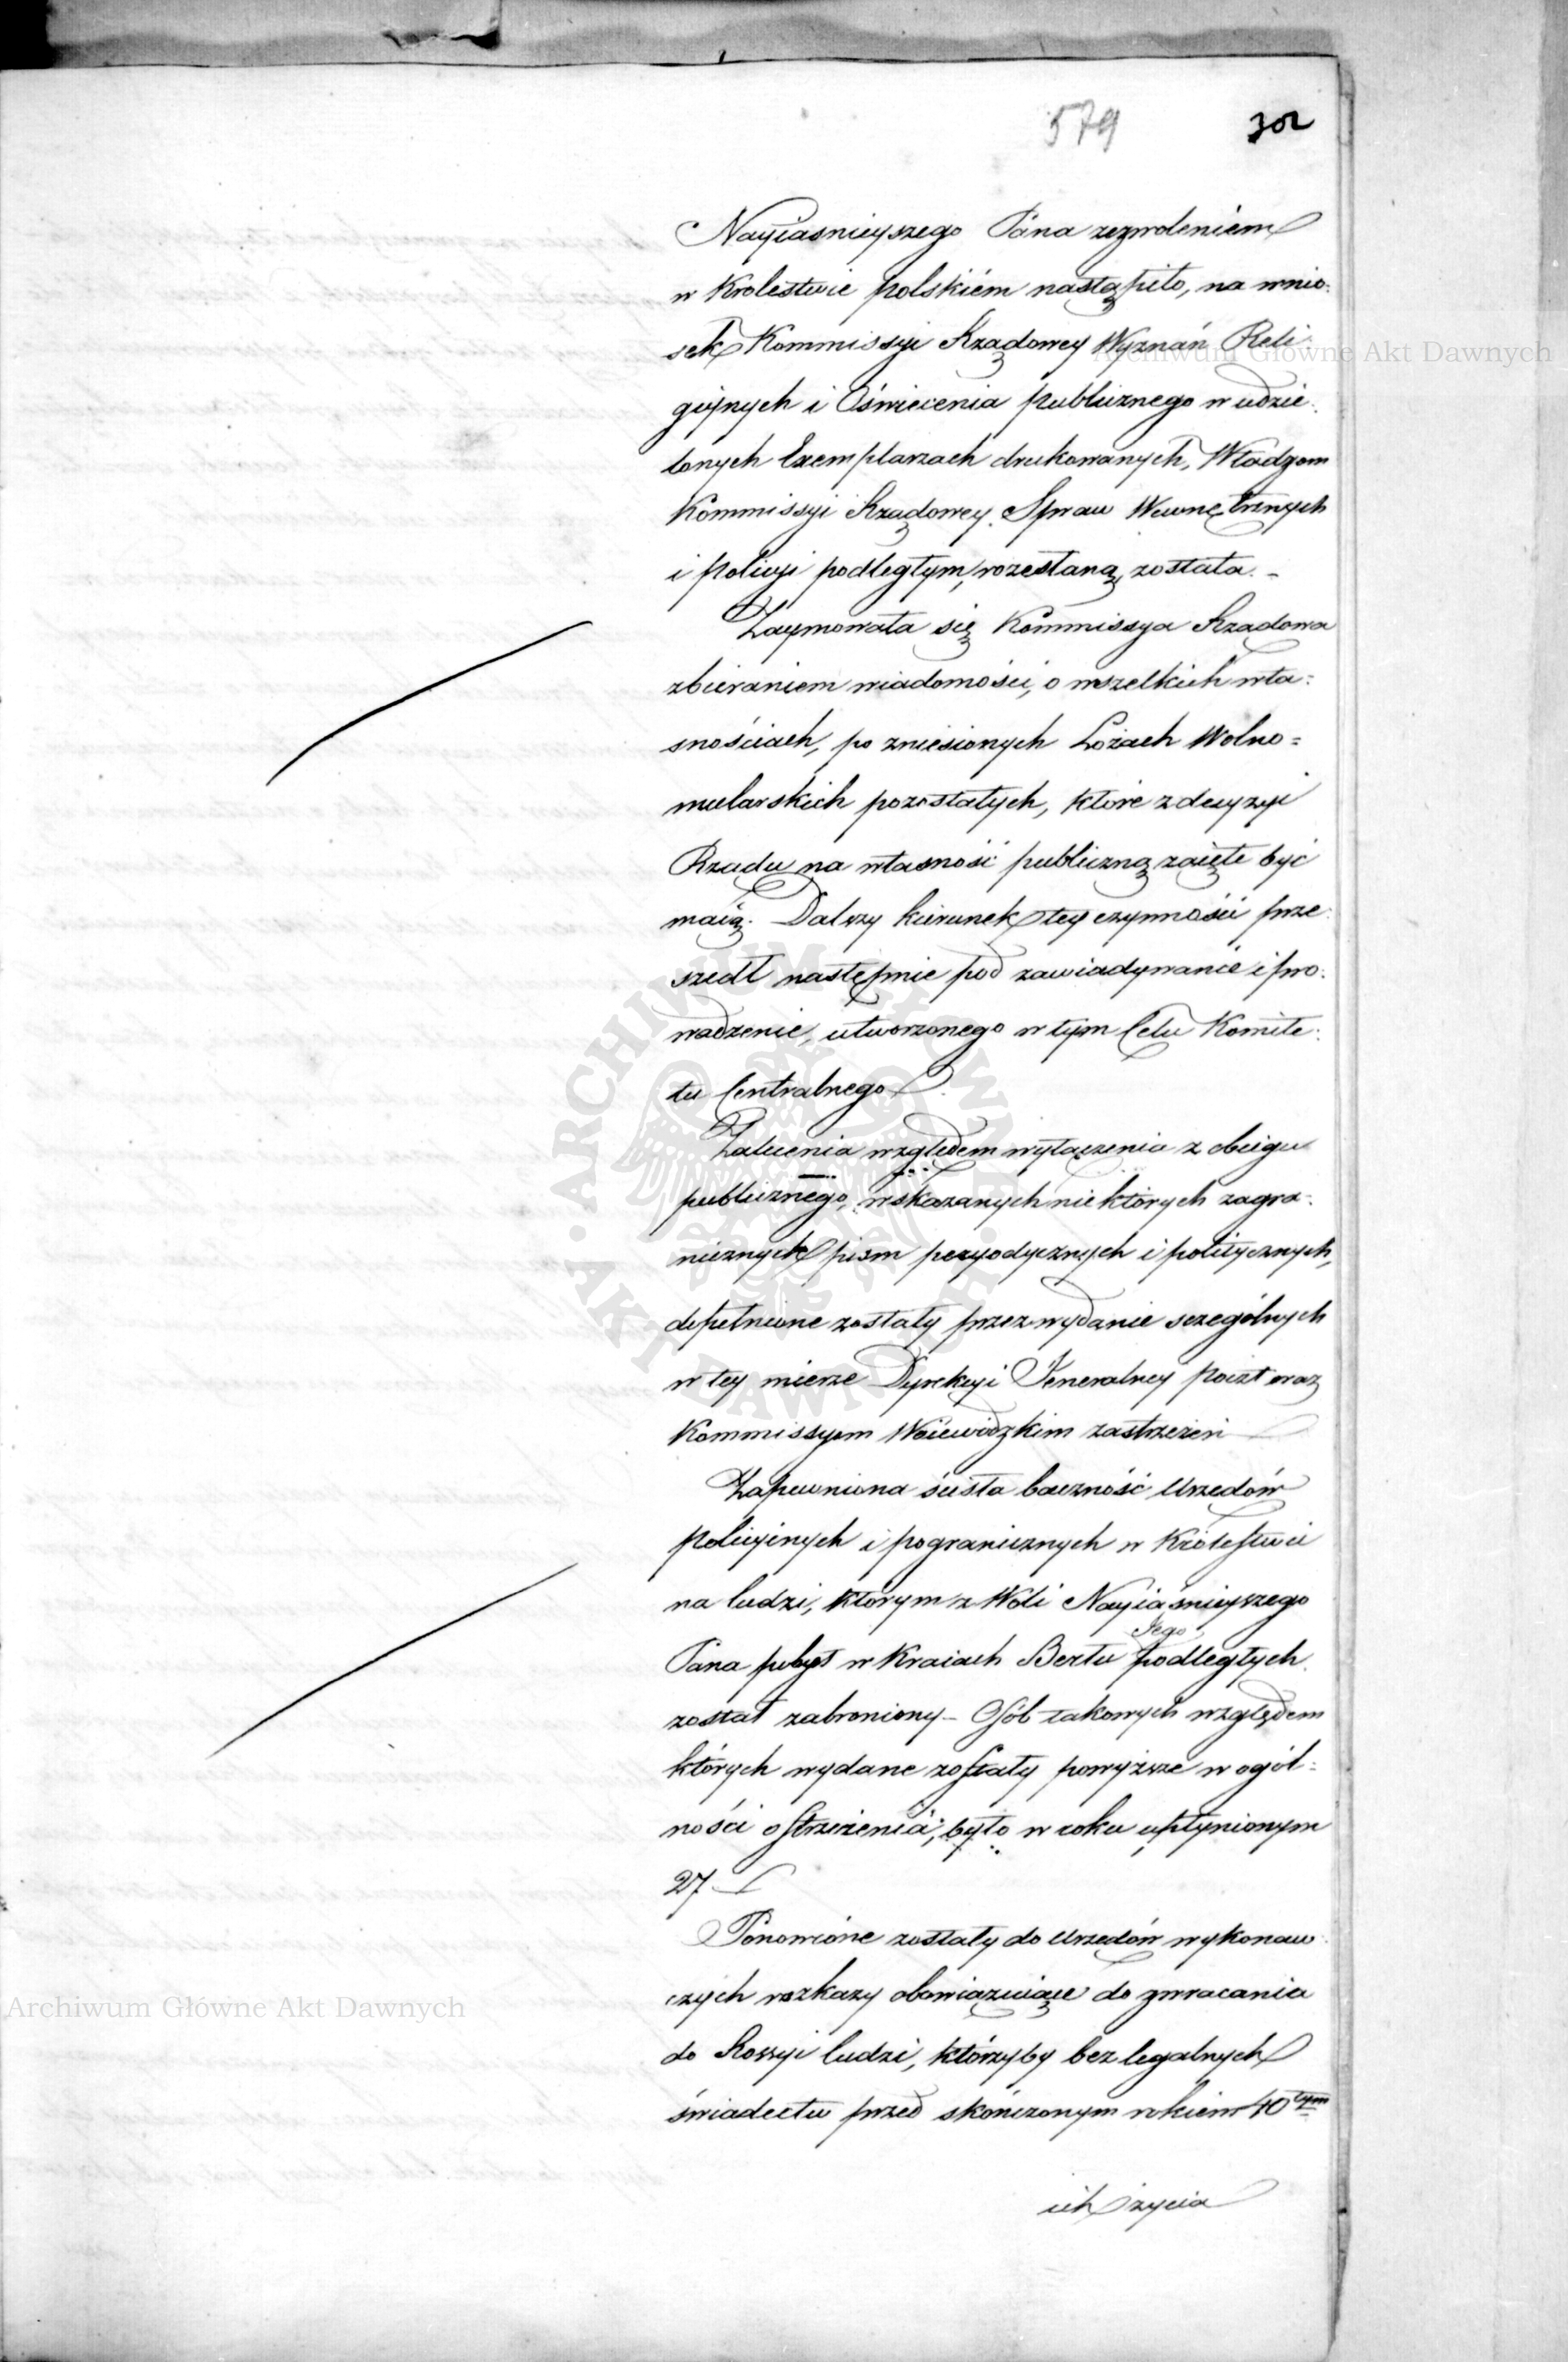 579 302
Nayiasnieyszego Pana zezwoleniem
w Krolestwie polskiém nastąpiło, na wnio-
sek Kommissyi Rządowey Wyznań Reli-
giynych i Oświecenia publicznego w udzie-
lonych Exemplarzach drukowanych, Władzom
Kommissyi Rządowey Spraw Wewnętrznych
i policyi podległym, rozesłaną została. –
Zaymowała się Kommissya Rządowa
zbieraniem wiadomości, o wszelkich wła=
snościach, po zniesionych Lożach Wolno=
mularskich pozostałych, które z decyzyi
Rządu na własność publiczną zaięte być
maią. Dalszy kierunek tey czynności prze-
szedł następnie pod zawiadywanie i pro-
wadzenie, utworzonego w tym Celu Komite-
tu Centralnego.
Zalecenia względem wyłączenia z obiegu
publicznego, wskazanych niektórych zagra-
nicznych pism peryodycznych i politycznych,
dopełnione zostały przez wydanie szczególnych
w tey mierze Dyrekcyi Jeneralney poczt oraz
Kommissyom Woiewódzkim zastrzeżeń
Zapewniona ścisła baczność Urzędów
policyinych i pogranicznych w Królestwie
na ludzi, którym z Woli Nayiaśnieyszego
Jego
Pana pobyt w Kraiach Berłu podległych
został zabroniony – Osób takowych względem
których wydane zostały powyższe w ogól=
ności ostrzeżenia, było w roku upłynionym
27
Ponowione zostały do Urzędów wykonaw-
czych rozkazy obowiązuiące do zwracania
do Rossyi ludzi, którzyby bez legalnych
świadectw przed skończonym rokiem 40tym
ich życia
Archiwum Główne Akt Dawnych
Archiwum Główne Akt Dawnych
ARCHIWUM GŁÓWNE AKT DAWNYCH